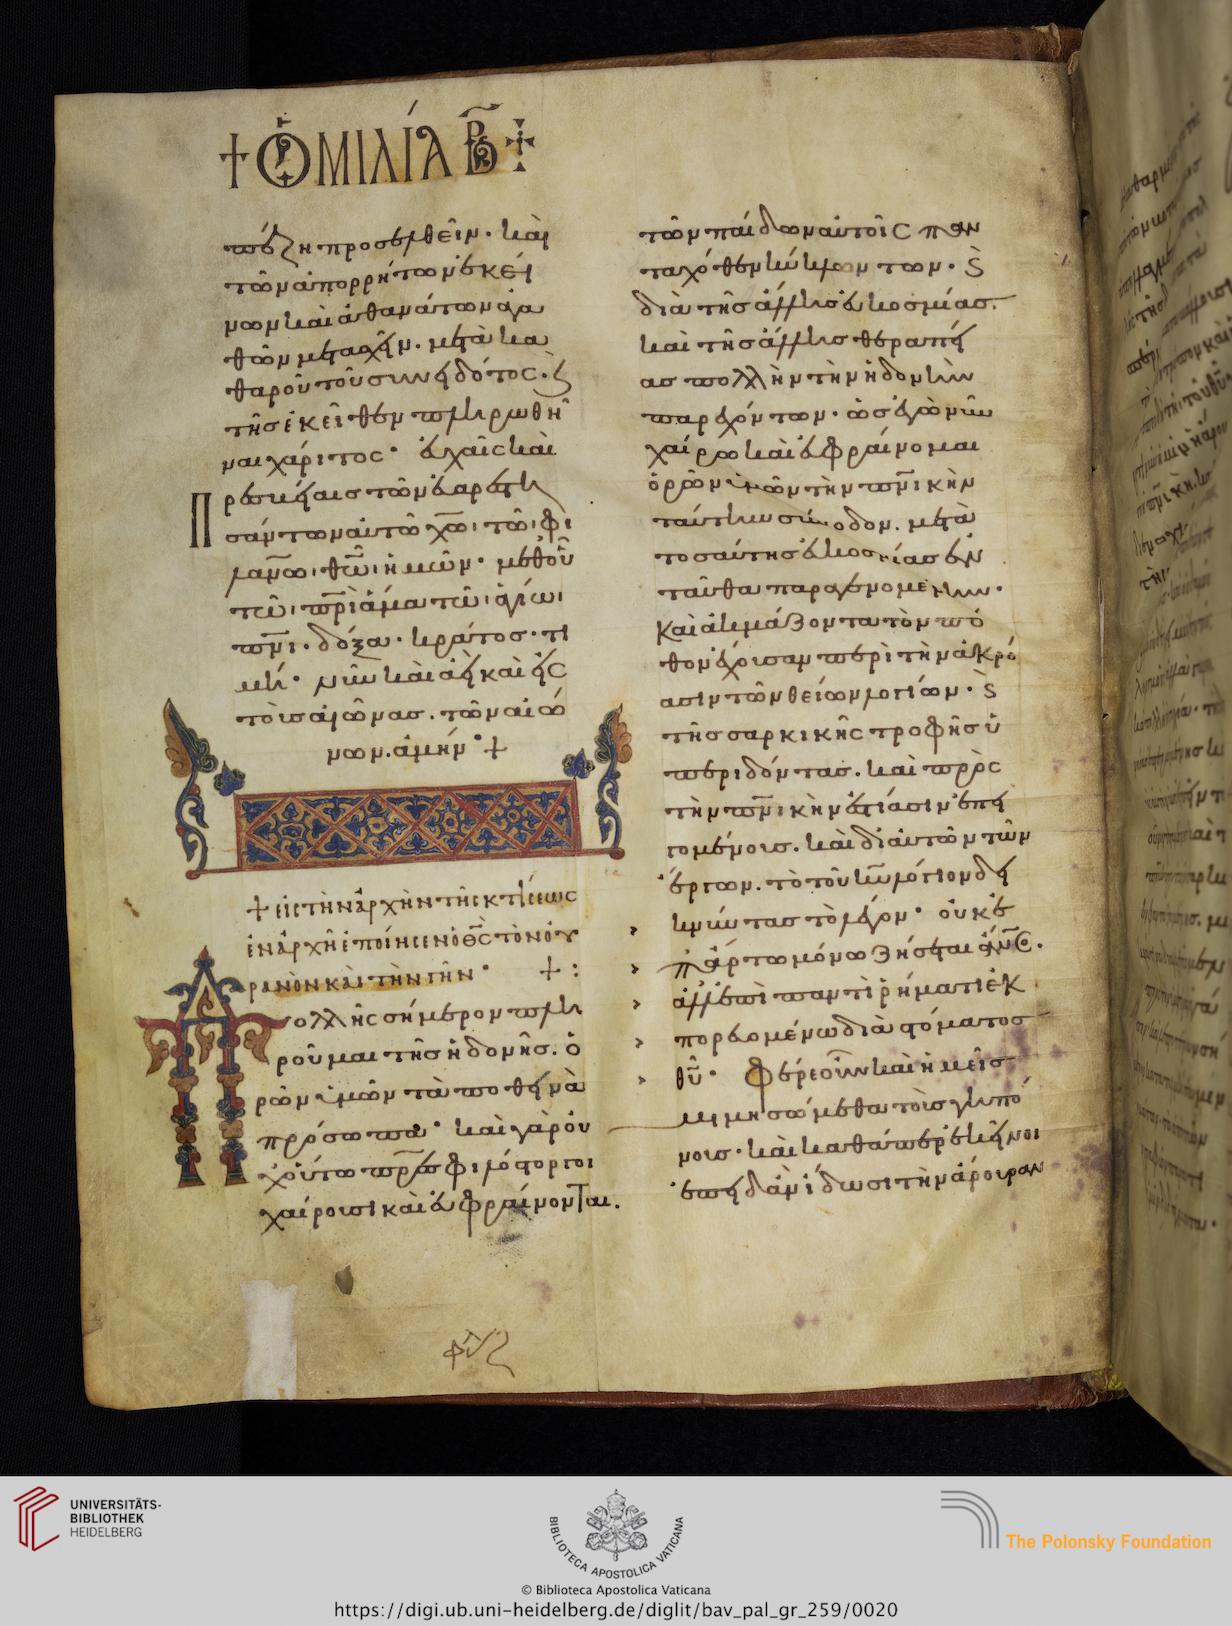 + ὉΜΙΛΊΑ Β +
τράπεζη προσελθεῖν· καὶ
τῶν ἀπορρήτων ἐκεί
νων καὶ ἀθανάτων ἀγα
θῶν μετασχεῖν. μετὰ κα
θαροῦ τοῦ συνειδότος· ϛ
τῆς ἐκεῖθεν πληρωθῆ
ναι χάριτος· εὐχαῖς καὶ
Πρεσβείαις τῶν εὐαρεστη
σάντων αὐτῶ χῶ· τῶ φι
λανω· θῶ ἡμῶν· μεθοῦ
τῶ πρὶ ἅμα τῶ ἁγίω
πνι· δόξα· κράτος· τι
μή· νῦν καὶ ἀεὶ καὶ εἰς
τοὺς αἰῶνας. τῶν αἰώ
νων. ἀμήν· +
+ εἰς τὴν ἀρχὴν τῆς κτίσεως
ἐν ἀρχῆ ἐποίησεν ὁ θς τὸν οὐ
ρανὸν καὶ τὴν γῆν· + :
Πολλῆς σήμερον πλη
ροῦμαι τῆς ἡδονῆς. ὁ
ρῶν ὑμῶν τὰ ποθεινὰ
πρόσωπα· καὶ γὰρ οὐ
χ οὕτω πρες φιλόστοργοι
χαίρουσι καὶ εὐφραίνονται.
τῶν παίδων αὐτοῖς παν
ταχόθεν κύκλων των· ϛ
διὰ τῆς ἄλλης εὐκοσμίας.
καὶ τῆς ἄλλης θεραπεί
ας πολλὴν τὴν ἡδονὴν
παρεχόντων· ὡς ἐγὼ νῦν
χαίρω καὶ εὐφραίνομαι
ὁρῶν ὑμῶν τὴν πνικὴν
ταύτην σύνοδον. μετὰ
τοσαύτης εὐκοσμίας ἐν
ταῦθα παραγενομένην·
Καὶ ἀκμάζοντα τὸν πό
θον ἔχουσαν περὶ τὴν ἀκρό
ασιν τῶν θείων λογίων· ϛ
τῆς σαρκικῆς τροφῆς ὑ
περιδόντας. καὶ πρὸς
τὴν πνικὴν ἑστίασιν ἐπει
γομένους. καὶ δι αὐτῶν τῶν
ἔργων. τὸ τοῦ κυ λόγιον δει
κνύντας τὸ λέγον· οὐκ ἐ
π ἄρτω μόνω ζήσεται ἄνος.
ἀλλ ἐπὶ παντὶ ῥήματι ἐκ
πορευομένω διὰ στόματος
θυ· Φέρε οὖν καὶ ἡμεῖς
μιμησώμεθα τοὺς γηπό
νους· καὶ καθάπερ ἐκεῖνοι
ἐπειδὰν ἴδωσι τὴν ἄρουραν
UNIVERSITÄTS-
BIBLIOTHEK
HEIDELBERG
BIBLIOTECA APOSTOLICA VATICANA
© Biblioteca Apostolica Vaticana
The Polonsky Foundation
https://digi.ub.uni-heidelberg.de/diglit/bav_pal_gr_259/0020